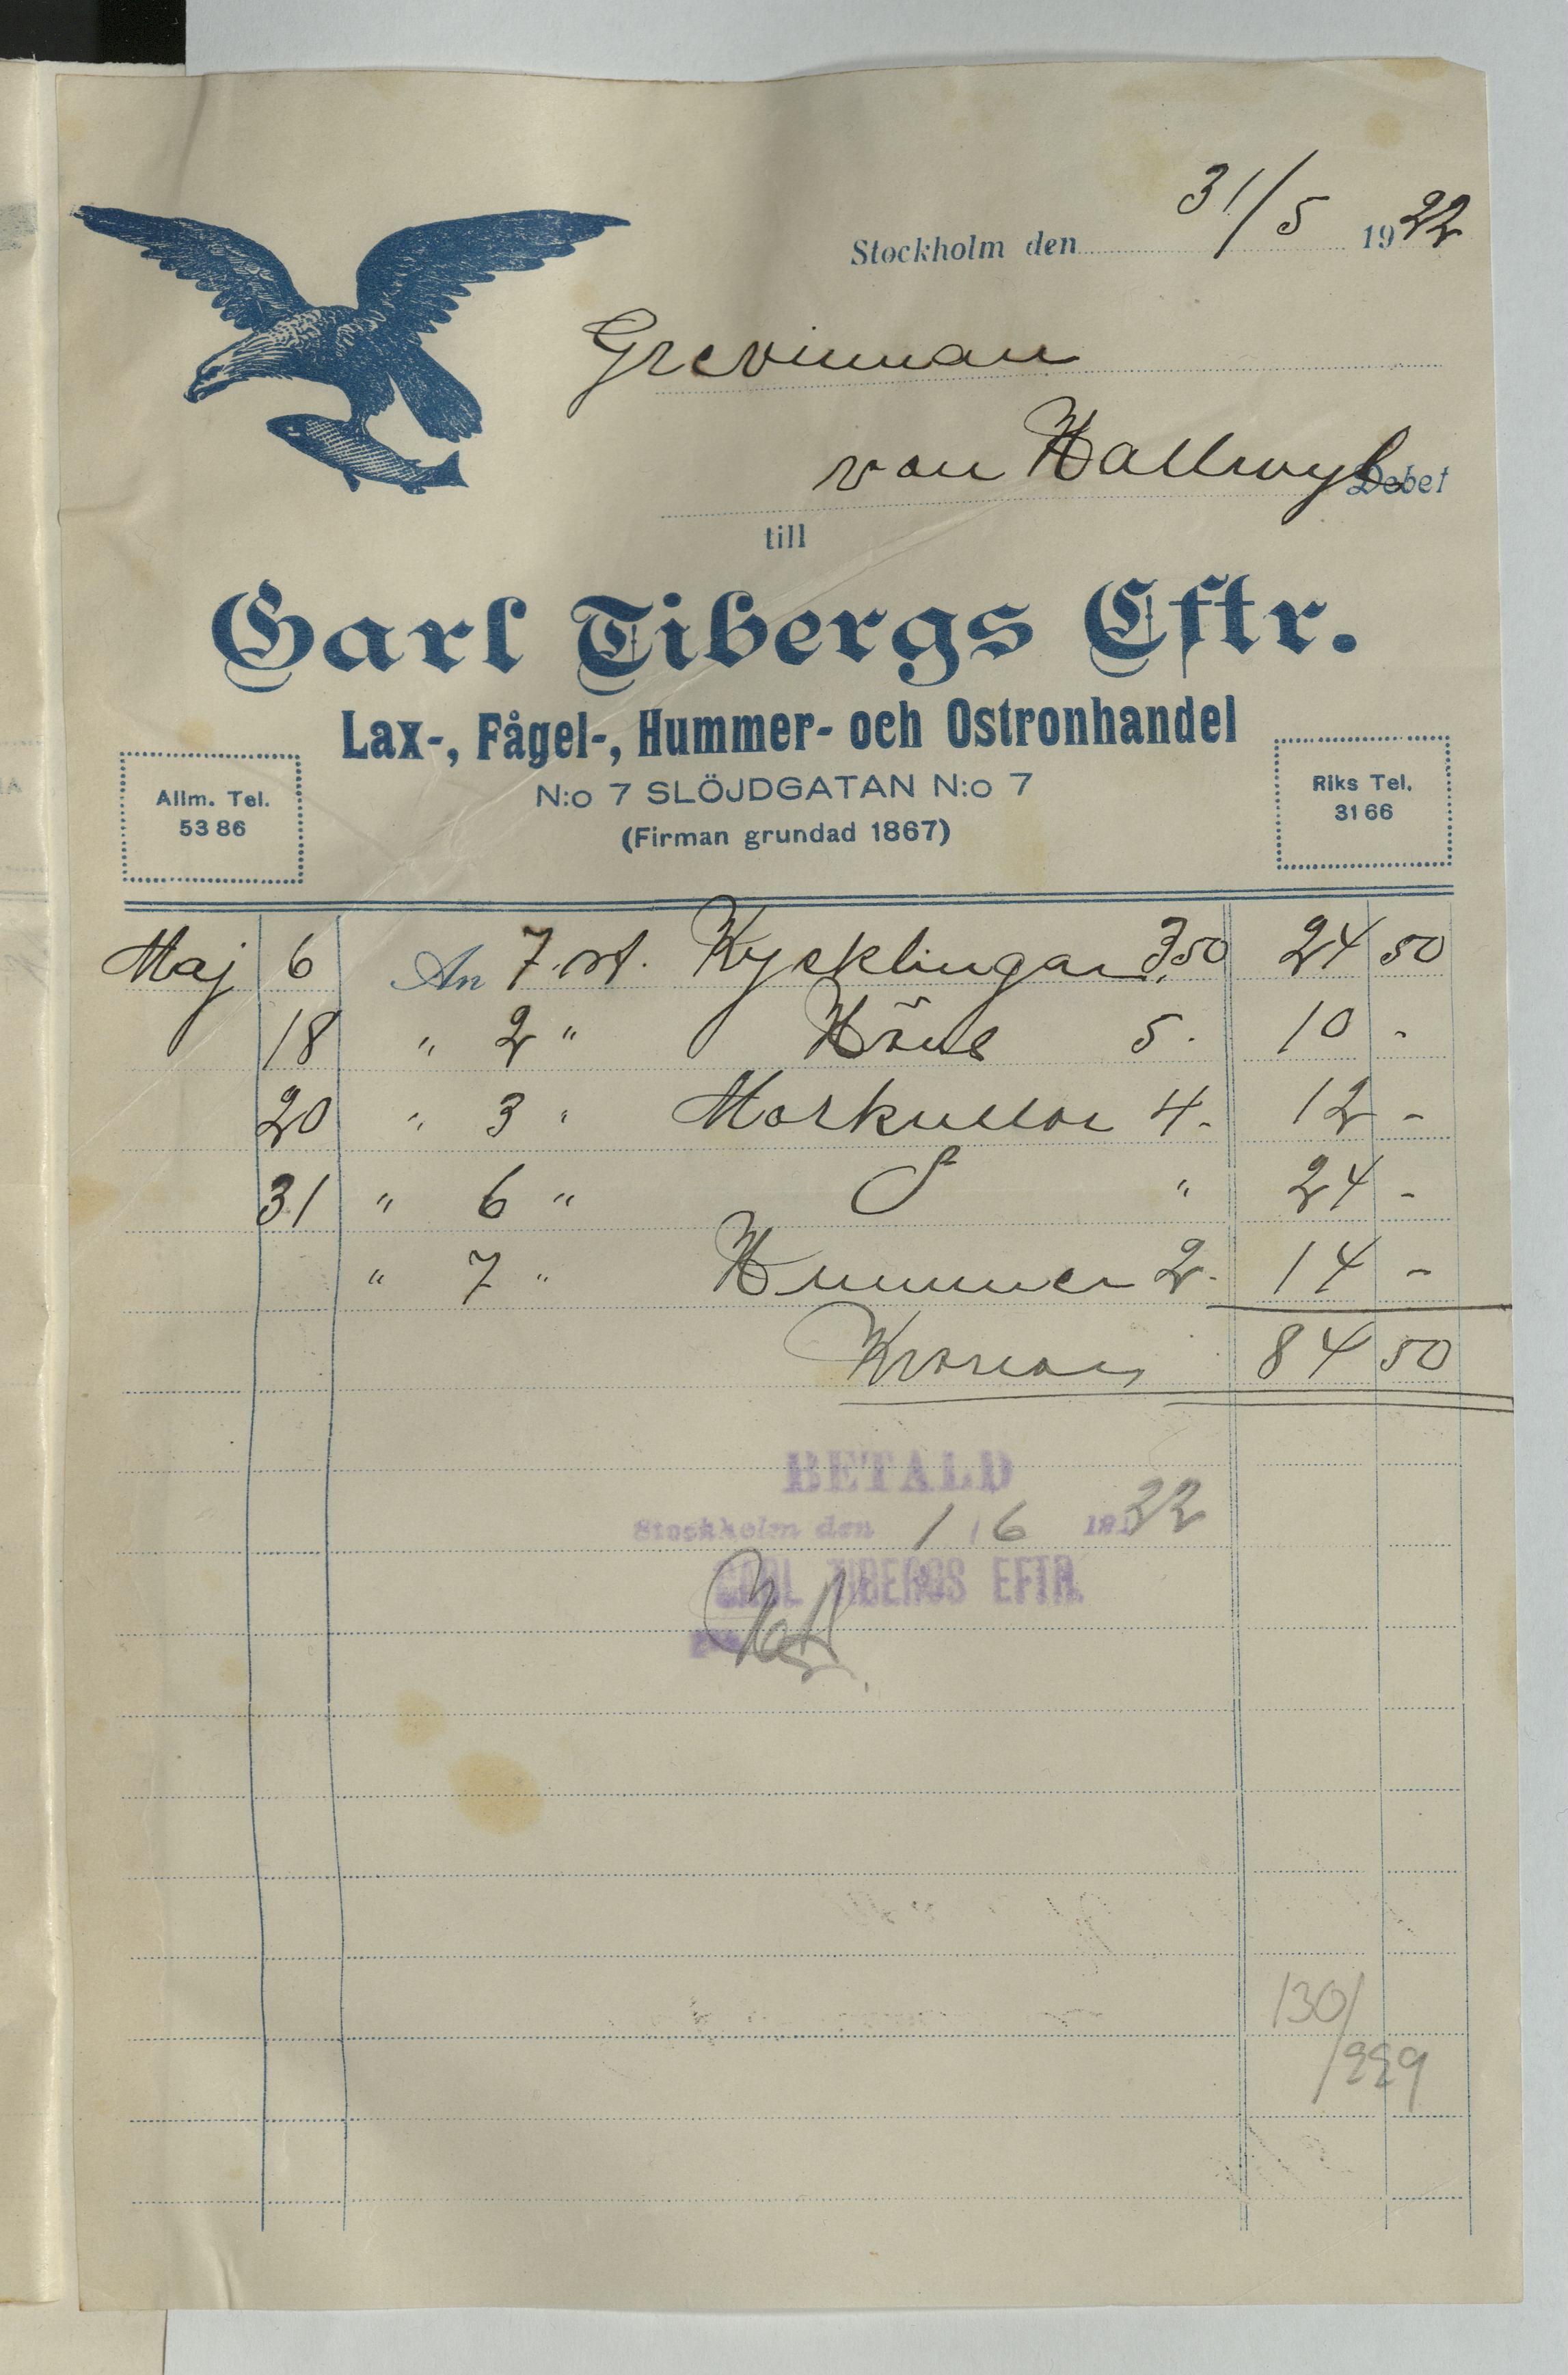 Stockholm den 31/5 1922
Grevinnan
von Hallwyl Debet
till
Carl Tibergs Eftr.
Lax-, Fågel-, Hummer- och Ostronhandel
N:o 7 SLÖJDGATAN N:o 7
(Firman grundad 1867)
Allm. Tel.
53 86
Riks Tel.
31 66
Maj 6 An 7 st. Kycklingar 3,50 24 50
18 " 2 " Höns 5. 10 -
20 " 3 " Morkullor 4. 12 -
31 " 6 " " 24 -
" 7 " Hummer 2. 14 -
Kronor 84 50
BETALD
Stockholm den 1/6 1922
CARL TIBERGS EFTR.
130/
/229